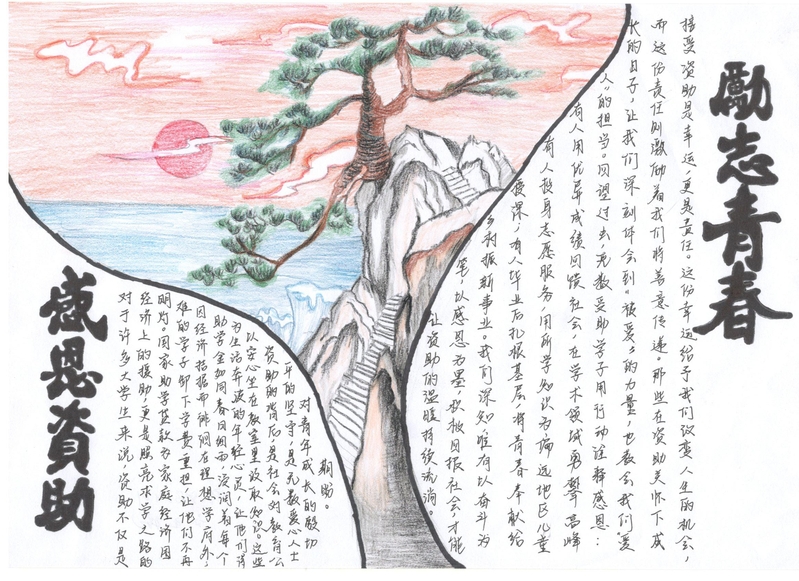 勵志青春
接受资助是幸运，更是责任。这份幸运给予我们改变人生的机会，
而这份责任则激励着我们将善意传递。那些在资助关怀下成
长的日子，让我们深刻体会到“被爱”的力量，也教会我们“爱
人”的担当。回望过去，无数受助学子用行动诠释感恩：
有人用优异成绩回馈社会，在学术领域勇攀高峰
有人投身志愿服务，用所学知识为偏远地区儿童
授课，有人毕业后扎根基层，将青春奉献给
乡村振新事业。我们深知唯有以奋斗为
笔，以感恩为墨，积极回报社会，才能
让资助的温暖持续流淌。
感恩資助
对于许多大学生来说，资助不仅是
经济上的援助，更是照亮求学之路的
明灯。国家助学款为家庭经济困
难的学子卸下学费重担，让他们不再
因经济拮据而徘徊在理想学府外，
助学金如同春日细雨，滋润着每个
为生活奔波的年轻心灵，让他们得
以安心坐在教室里汲取知识。这些
资助的背后，是社会对教育公
平的坚守，是无数爱心人士
对青年成长的殷切
期盼。